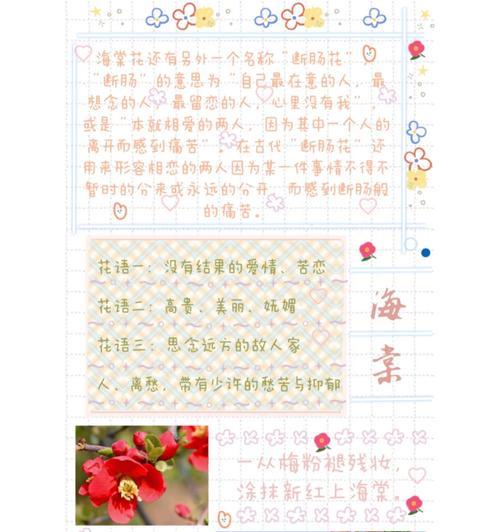 海棠花还有另外一个名称“断肠花”
，“断肠”的意思为“自己最在意的人，最
想念的人，最留恋的人，心里没有我”，
或是“本就相爱的两人，因为其中一个人的
离开而感到痛苦”。在古代“断肠花”还
用来形容相恋的两人因为某一件事情不得不
暂时的分来或永远的分开，而感到断肠般
的痛苦。
花语一：没有结果的爱情、苦恋
花语二：高贵、美丽、妩媚
花语三：思念远方的故人家
人、离愁，带有少许的愁苦与抑郁
海
棠
一从梅粉褪残妆，
涂抹新红上海棠。